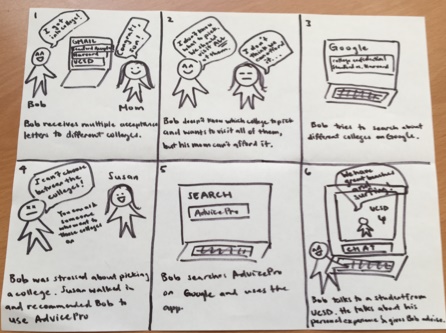 1
I got into colleges!
GMAIL
Harvard
UCSD
Congrats, son!
Bob
Mom
Bob receives multiple acceptance
letters to different colleges.
2
of them.
I don't think
Bob doesn't know which college to pick
and wants to visit all of them,
but his mom can't afford it.
3
Google
Bob tries to search about
different colleges on Google.
4
I can't choose
between the
colleges!
Susan
You can ask
someone
who went to
those colleges
on
Bob was stressed about picking
a college. Susan walked in
and recommended Bob to
use AdvicePro
5
SEARCH
AdvicePro
Bob searches AdvicePro
on Google and uses the
app.
6
We have
great beaches
and
surfing!
UCSD
CHAT
Bob talks to a student from
UCSD. He talks about his
personal experience & gives Bob advice.